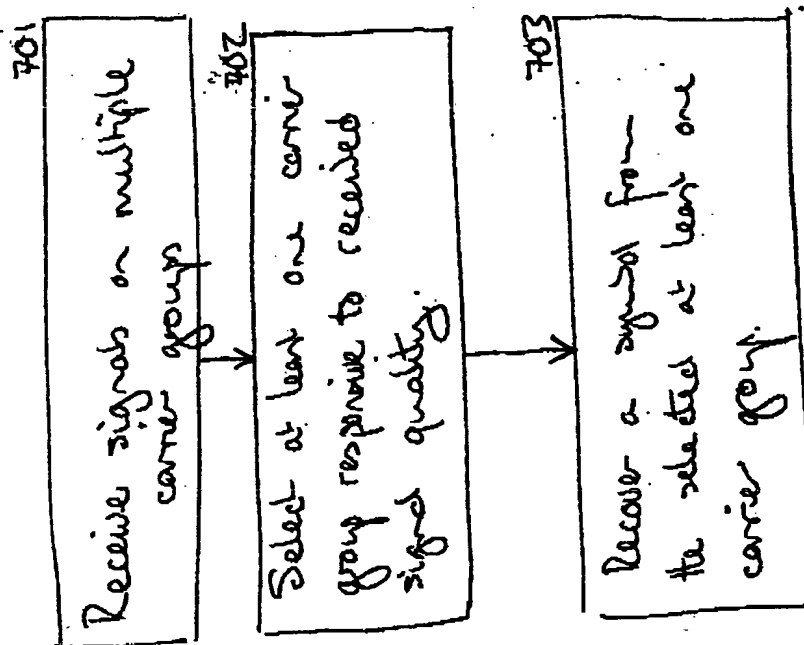 701
Receive signals on multiple
carrier groups
702
Select at least one carrier
group responsive to received
signal quality.
703
Recover a symbol from
the selected at least one
carrier group.